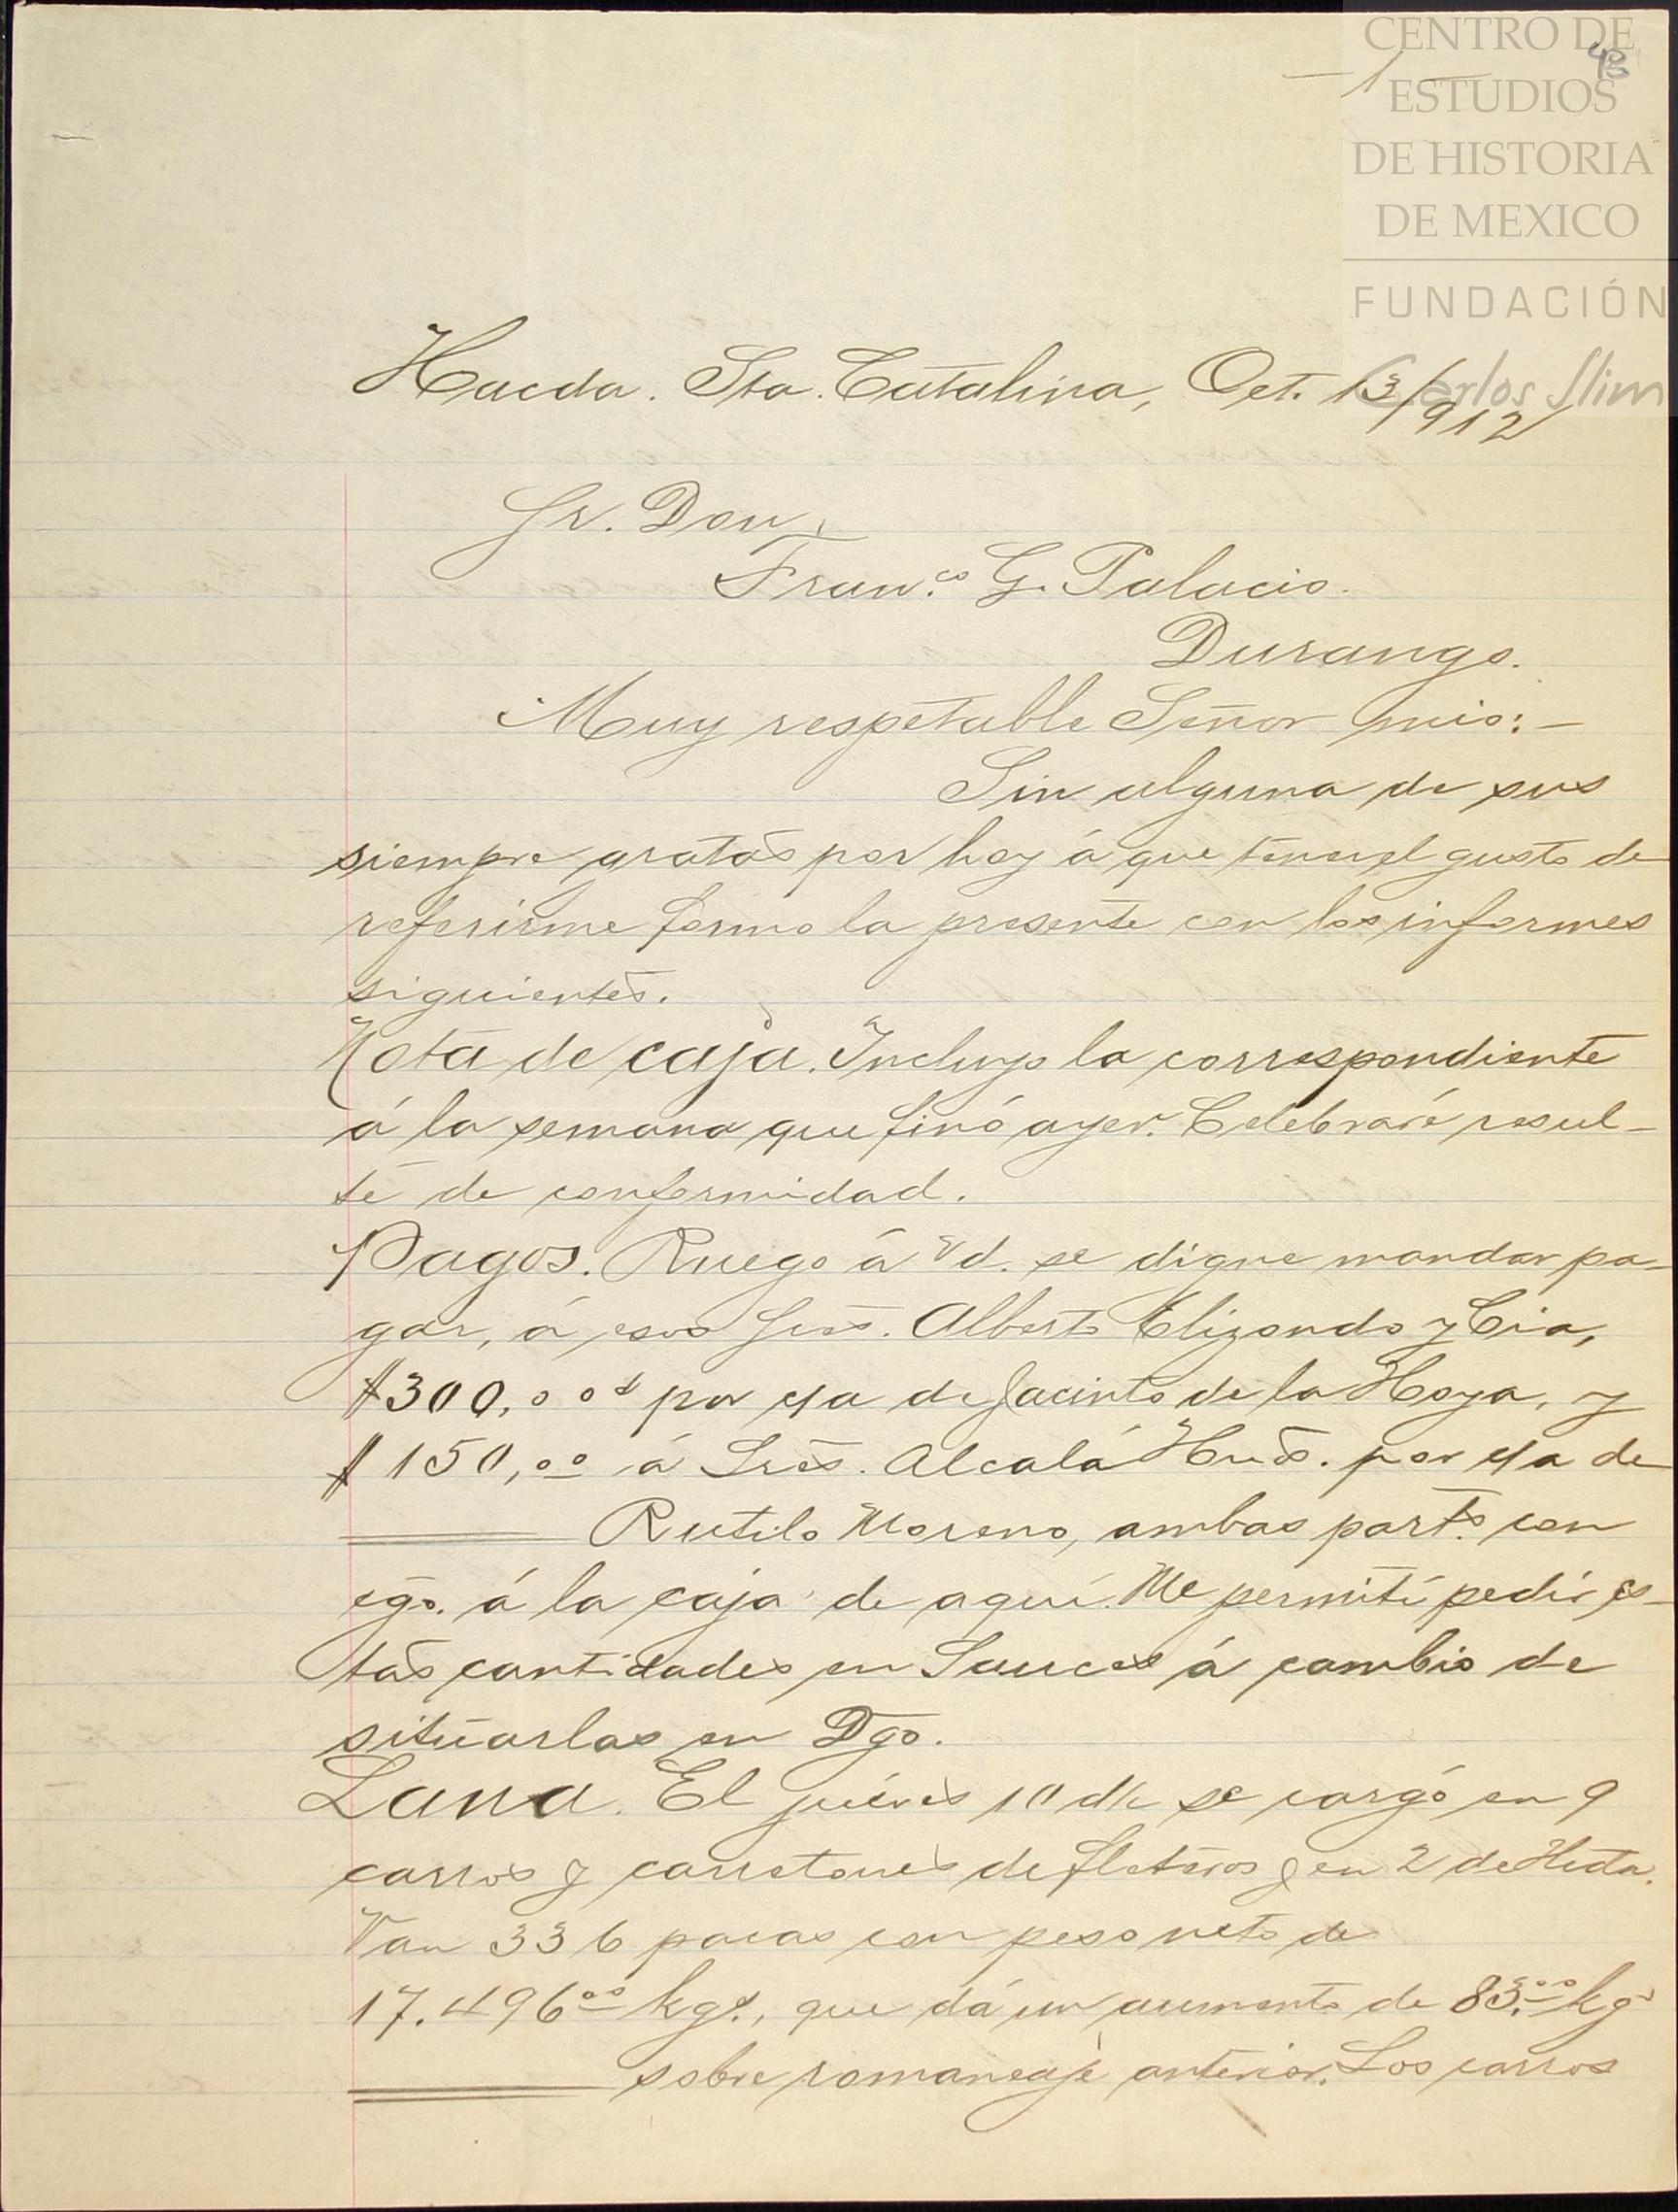 CENTRO DE
ESTUDIOS
DE HISTORIA
DE MEXICO
FUNDACIÓN
Carlos Slim
— 1 —
43
Hacda. Sta. Catalina, Oct. 13/912
Sr. Don,
Franco. G. Palacio.
Durango.
Muy respetable Señor mio:-
Sin alguna de sus
siempre gratas por hoy á que tener el gusto de
referirme formo la presente con los informes
siguientes.
Nota de caja. Incluyo la correspondiente
á la semana que finó ayer. Celebraré resul-
te de conformidad.
Pagos. Ruego á Vd. se digne mandar pa-
gar, á esos Sres. Alberto Elizondo y Cia,
$300,00 por cta de Jacinto de la Hoya, y
$150,00 á Sres. Alcalá Hnos. por cta de
Rutilo Moreno, ambas parts. con
cgo. á la caja de aquí. Me permití pedir es-
tas cantidades en Sauces á cambio de
situarlas en Dgo.
Lana. El juéves 10 d/c se cargó en 9
carros y carretones de fleteros y en 2 de Hcda.
Van 336 pacas con peso neto de
17.49600 kgs., que dá un aumento de 83.00 kg
sobre romaneaje anterior. Los carros